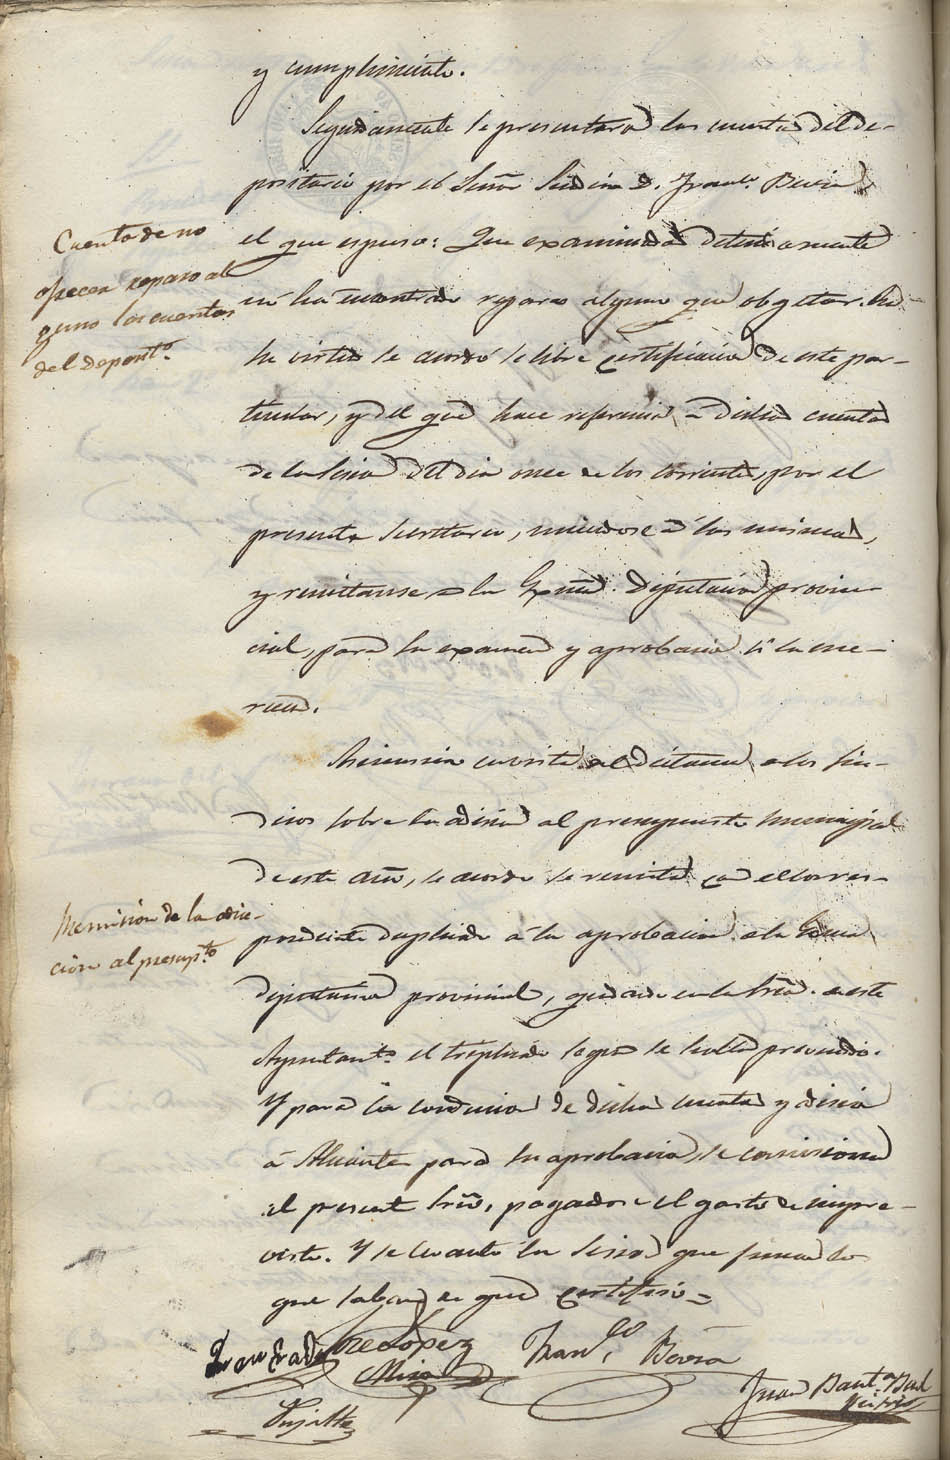 y cumplimiento.
Seguidamente se presentaron las cuentas del de-
positario por el Señor Sindico D. Franco. Bevia
el que espuso: Que examinadas detenidamente
no ha encontrado reparo alguno que obgetar. En
su virtud se acordó se libre certificacion de este par-
ticular, y del que hace referencia a dichas cuentas
de la sesion del dia once de los corrientes, por el
presente Secretario, uniendose á las mismas,
y remitanse a la Exma. Diputacion provin-
cial, para su examen y aprobacion si la me-
recen.
Cuentas de no
ofrecer reparo al
guno las cuentas
del deposito.
al dictamen de los Sin-
dicos sobre la adicion al presupuesto municipal
de este año, se acordó se remita con el corres-
pondiente duplicado á la aprobacion de la Exma
diputacion provincial, quedando en la Sria. de este
Ayuntamto. el triplicado segun se halla prevenido.
Y para la conduccion de dicha cuenta y adicion
á Alicante para su aprobacion, se comisiona
el presente Srio, pagandose el gasto de impre-
visto. Y se levantó la sesion que firman los
que saben de que certifico =
Remision de la adic-
cion al presupto
López
Mira
Franco Bevia
Juan Bauta